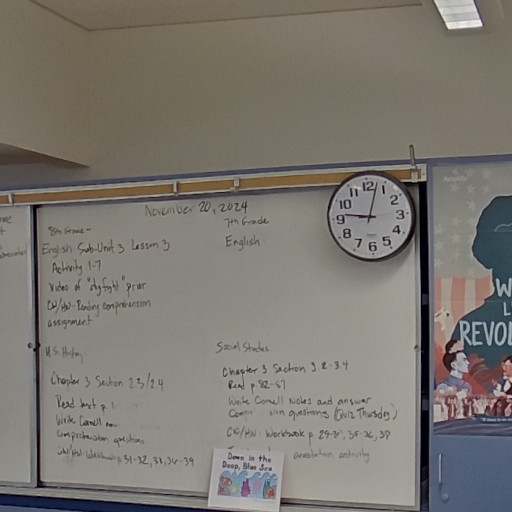 November 20, 2024
8th Grade -
English: Sub-Unit 3 Lesson 3
Activity 1-7
Video of "dogfight" prior
CW/HW- Reading comprehension
assignment
U.S. History
Chapter 3 Section 2.3/2.4
Read text p.
Write Cornell
comprehension questions
CW/HW- Workbook p. 31-32, 33, 34-39
7th Grade
English:
Social Studies
Chapter 3 Section 3.2-3.4
Read p. 82-87
Write Cornell Notes and answer
questions (Quiz Thursday)
CW/HW: Workbook p.
annotation activity
Down in the
Deep, Blue Sea
12
1
2
3
4
5
6
7
8
9
10
11
W
L
REVOL